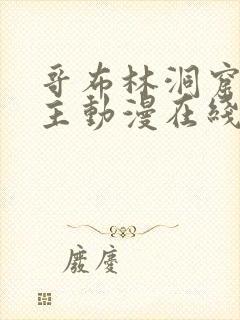 哥布林洞窟
主動漫在綫
廢慶